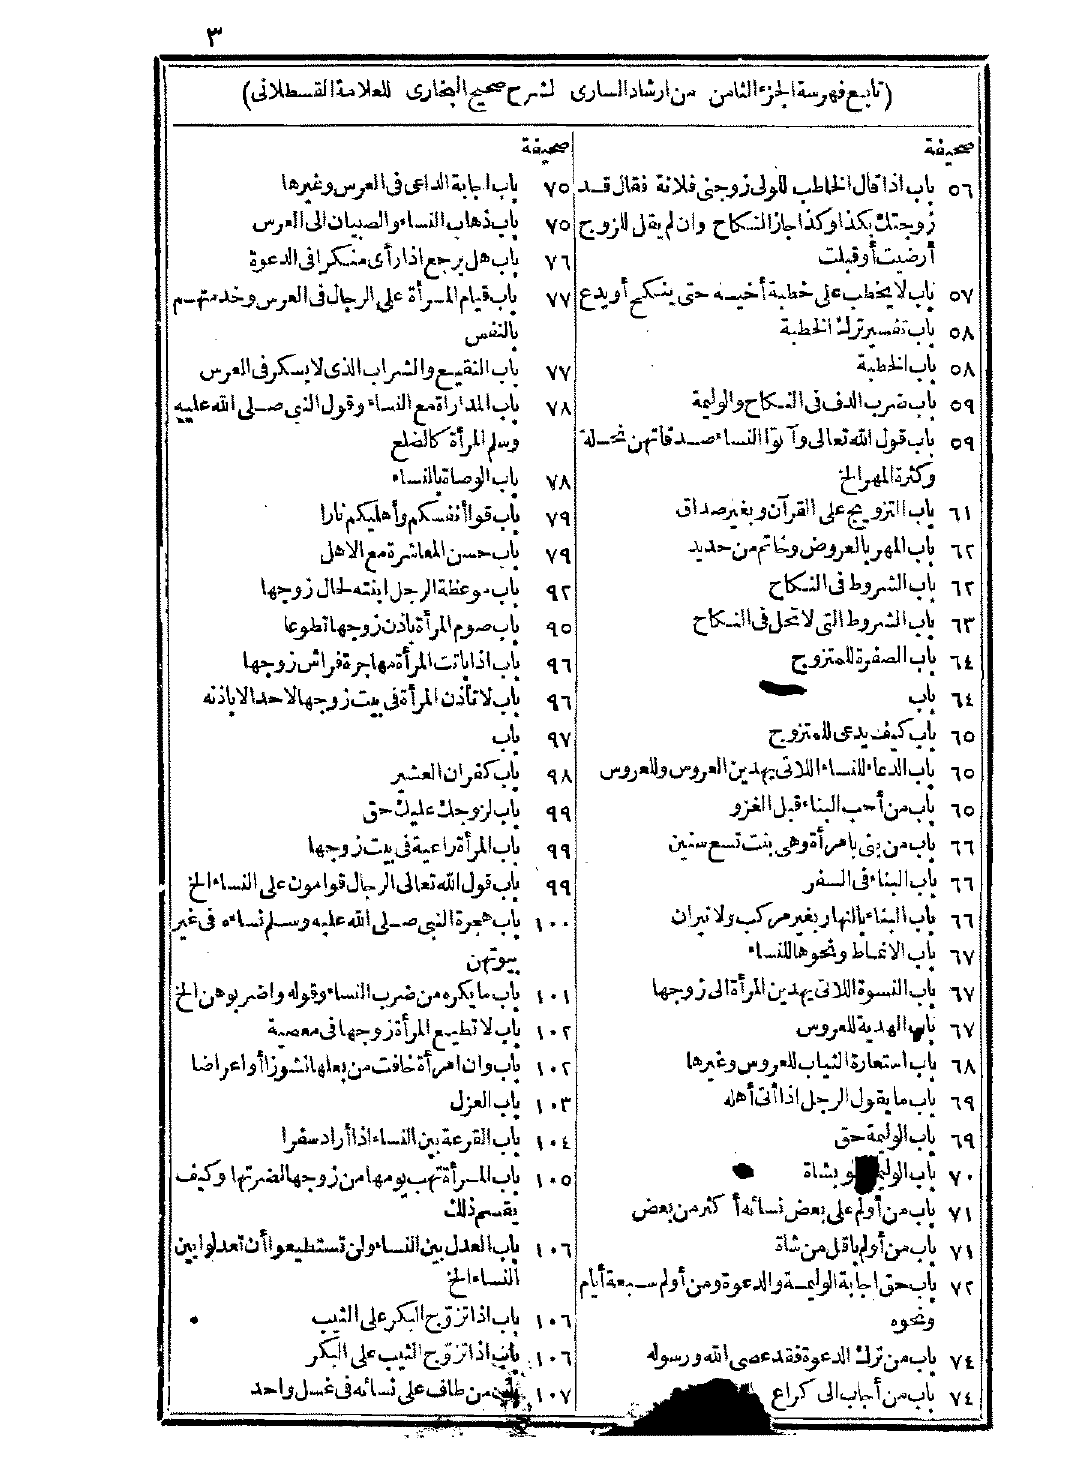 ٣
(تابع فهرسة الجزء الثامن من ارشاد السارى لشرح صحيح البخارى للعلامة القسطلانى)
صحيفة
٥٦ باب اذا قال الخاطب للولى زوجنى فلانة فقال قد
زوجتك بكذا وكذا جاز النكاح وان لم يقل للزوج
أرضيت أو قبلت
٥٧ باب لا يخطب على خطبة أخيه حتى ينكح أو يدع
٥٨ باب تفسير ترك الخطبة
٥٨ باب الخطبة
٥٩ باب ضرب الدف فى النكاح والوليمة
٥٩ باب قول الله تعالى وآتوا النساء صدقاتهن نحلة
وكثرة المهر الخ
٦١ باب التزويج على القرآن وبغير صداق
٦٢ باب المهر بالعروض وخاتم من حديد
٦٢ باب الشروط فى النكاح
٦٣ باب الشروط التى لا تحل فى النكاح
٦٤ باب الصفرة للمتزوج
٦٤ باب
٦٥ باب كيف يدعى للمتزوج
٦٥ باب الدعاء للنساء اللاتى يهدين العروس وللعروس
٦٥ باب من أحب البناء قبل الغزو
٦٦ باب من بنى بامرأة وهى بنت تسع سنين
٦٦ باب البناء فى السفر
٦٦ باب البناء بالنهار بغير مركب ولا نيران
٦٧ باب الانماط ونحوها للنساء
٦٧ باب النسوة اللاتى يهدين المرأة الى زوجها
٦٧ باب الهدية للعروس
٦٨ باب استعارة الثياب للعروس وغيرها
٦٩ باب ما يقول الرجل اذا أتى أهله
٦٩ باب الوليمة حق
٧٠ باب الوليمة ولو بشاة
٧١ باب من أولم على بعض نسائه أكثر من بعض
٧١ باب من أولم باقل من شاة
٧٢ باب حق اجابة الوليمة والدعوة ومن أولم سبعة أيام
ونحوه
٧٤ باب من ترك الدعوة فقد عصى الله ورسوله
٧٤ باب من أجاب الى كراع
صحيفة
٧٥ باب اجابة الداعى فى العرس وغيرها
٧٥ باب ذهاب النساء والصبيان الى العرس
٧٦ باب هل يرجع اذا رأى منكرا فى الدعوة
٧٧ باب قيام المرأة على الرجال فى العرس وخدمتهم
بالنفس
٧٧ باب النقيع والشراب الذى لا يسكر فى العرس
٧٨ باب المداراة مع النساء وقول النبى صلى الله عليه
وسلم المرأة كالضلع
٧٨ باب الوصاة بالنساء
٧٩ باب قوا أنفسكم وأهليكم نارا
٧٩ باب حسن المعاشرة مع الاهل
٩٢ باب موعظة الرجل ابنته لحال زوجها
٩٥ باب صوم المرأة باذن زوجها تطوعا
٩٦ باب اذا باتت المرأة مهاجرة فراش زوجها
٩٦ باب لا تأذن المرأة فى بيت زوجها لاحد الا باذنه
٩٧ باب
٩٨ باب كفران العشير
٩٩ باب لزوجك عليك حق
٩٩ باب المرأة راعية فى بيت زوجها
٩٩ باب قول الله تعالى الرجال قوامون على النساء الخ
١٠٠ باب هجرة النبى صلى الله عليه وسلم نساءه فى غير
بيوتهن
١٠١ باب ما يكره من ضرب النساء وقوله واضربوهن الخ
١٠٢ باب لا تطيع المرأة زوجها فى معصية
١٠٢ باب وان امرأة خافت من بعلها نشوزا أو اعراضا
١٠٣ باب العزل
١٠٤ باب القرعة بين النساء اذا أراد سفرا
١٠٥ باب المرأة تهب يومها من زوجها لضرتها وكيف
يقسم ذلك
١٠٦ باب العدل بين النساء ولن تستطيعوا أن تعدلوا بين
النساء الخ
١٠٦ باب اذا تزوج البكر على الثيب
١٠٦ باب اذا تزوج الثيب على البكر
١٠٧ باب من طاف على نسائه فى غسل واحد